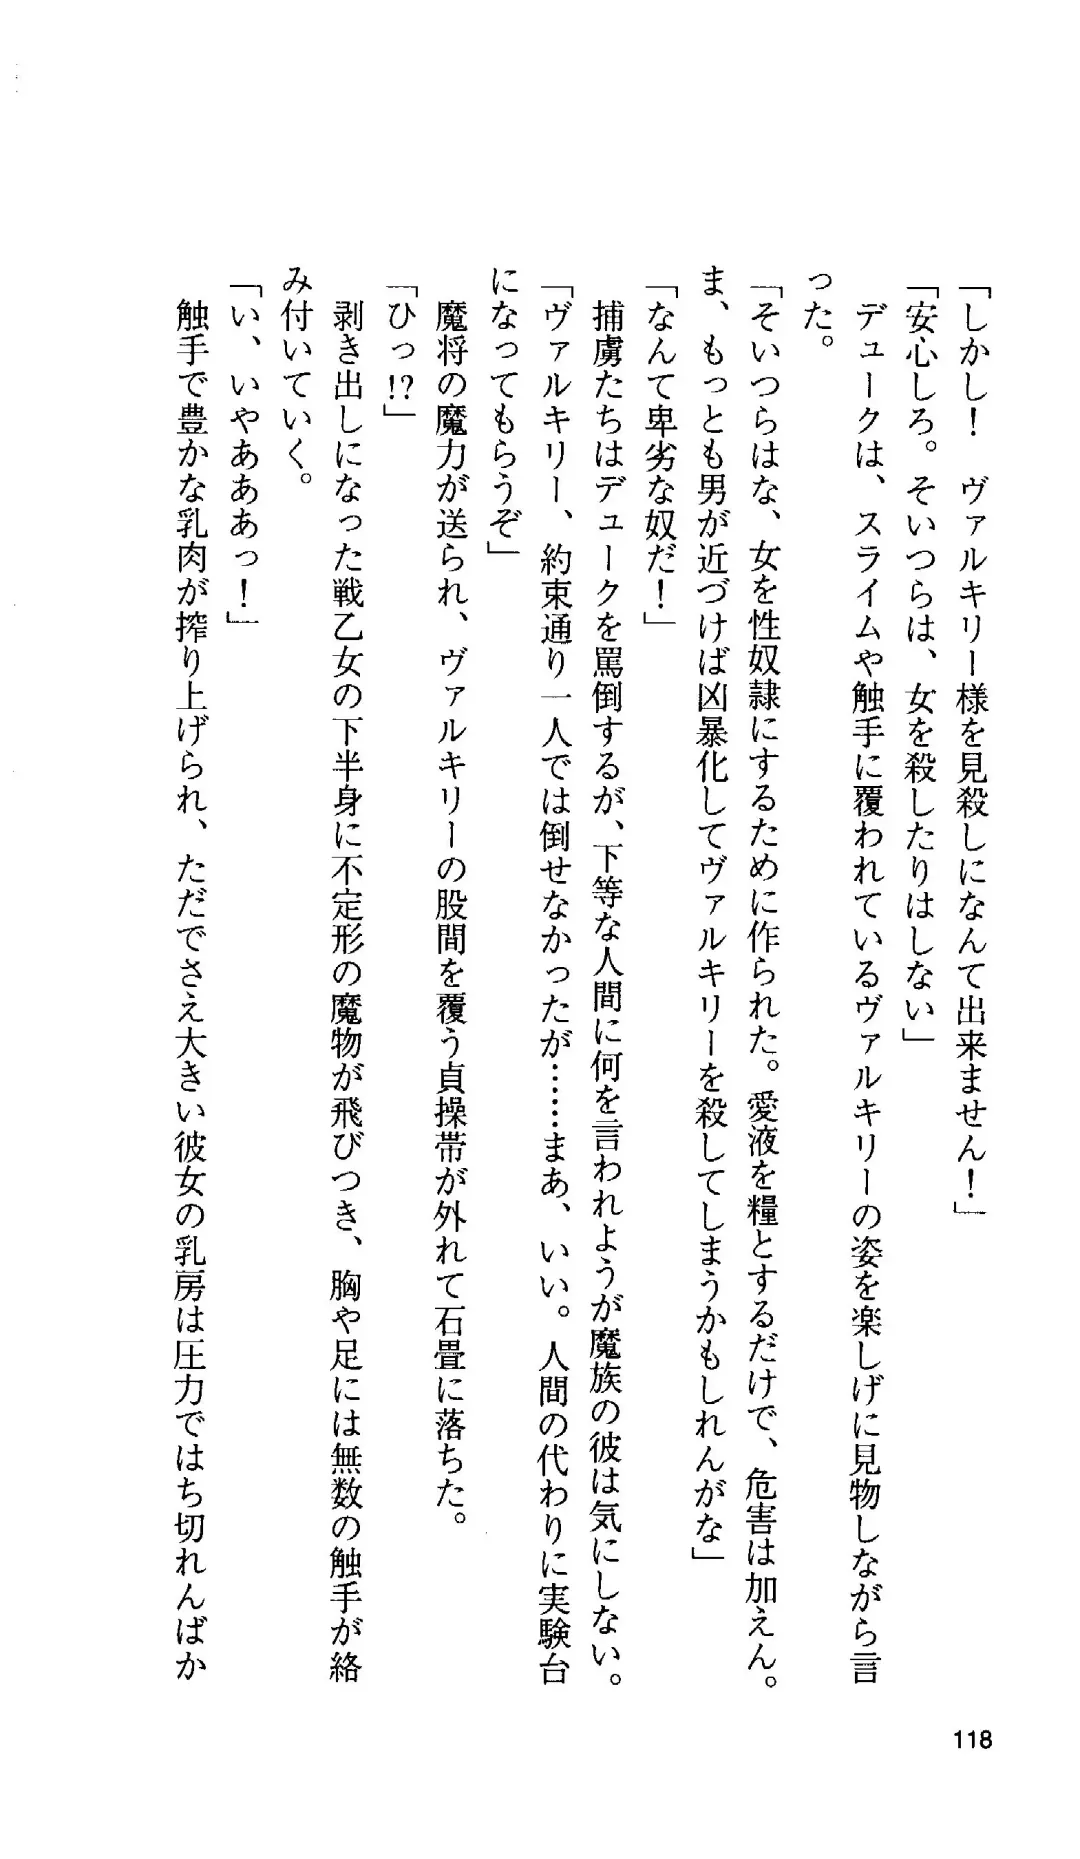 「しかし！　ヴァルキリー様を見殺しになんて出来ません！」
「安心しろ。そいつらは、女を殺したりはしない」
　デュークは、スライムや触手に覆われているヴァルキリーの姿を楽しげに見物しながら言
った。
「そいつらはな、女を性奴隷にするために作られた。愛液を糧とするだけで、危害は加えん。
ま、もっとも男が近づけば凶暴化してヴァルキリーを殺してしまうかもしれんがな」
「なんて卑劣な奴だ！」
　捕虜たちはデュークを罵倒するが、下等な人間に何を言われようが魔族の彼は気にしない。
「ヴァルキリー、約束通り一人では倒せなかったが……まあ、いい。人間の代わりに実験台
になってもらうぞ」
　魔将の魔力が送られ、ヴァルキリーの股間を覆う貞操帯が外れて石畳に落ちた。
「ひっ!?」
　剥き出しになった戦乙女の下半身に不定形の魔物が飛びつき、胸や足には無数の触手が絡
み付いていく。
「い、いやあああっ！」
　触手で豊かな乳肉が搾り上げられ、ただでさえ大きい彼女の乳房は圧力ではち切れんばか
118